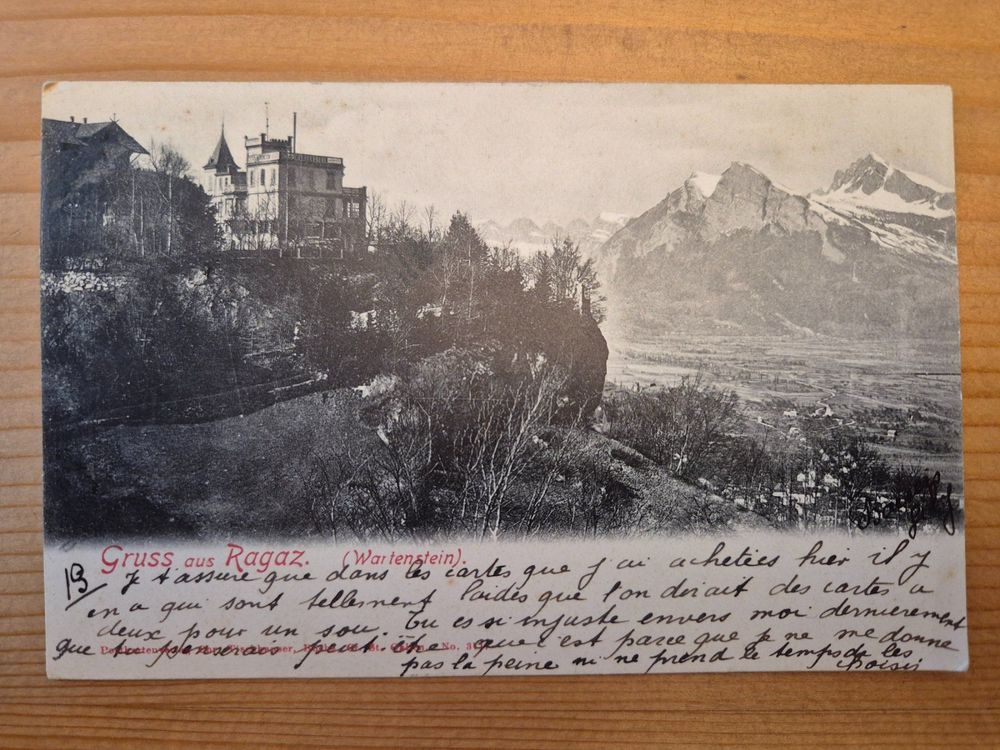 Gruss aus Ragaz. (Wartenstein).
13
Je t'assure que dans les cartes que j'ai achetées hier il y
en a qui sont tellement laides que l'on dirait des cartes a
deux pour un sou. Tu es si injuste envers moi dernierement
que tu penseras peut-être que c'est parce que je ne me donne
pas la peine ni ne prend le temps de les
choisir
No.